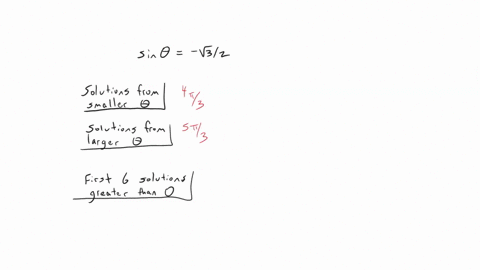 sin θ = -√3/2
Solutions from
smaller θ
4π/3
Solutions from
larger θ
5π/3
First 6 solutions
greater than 0